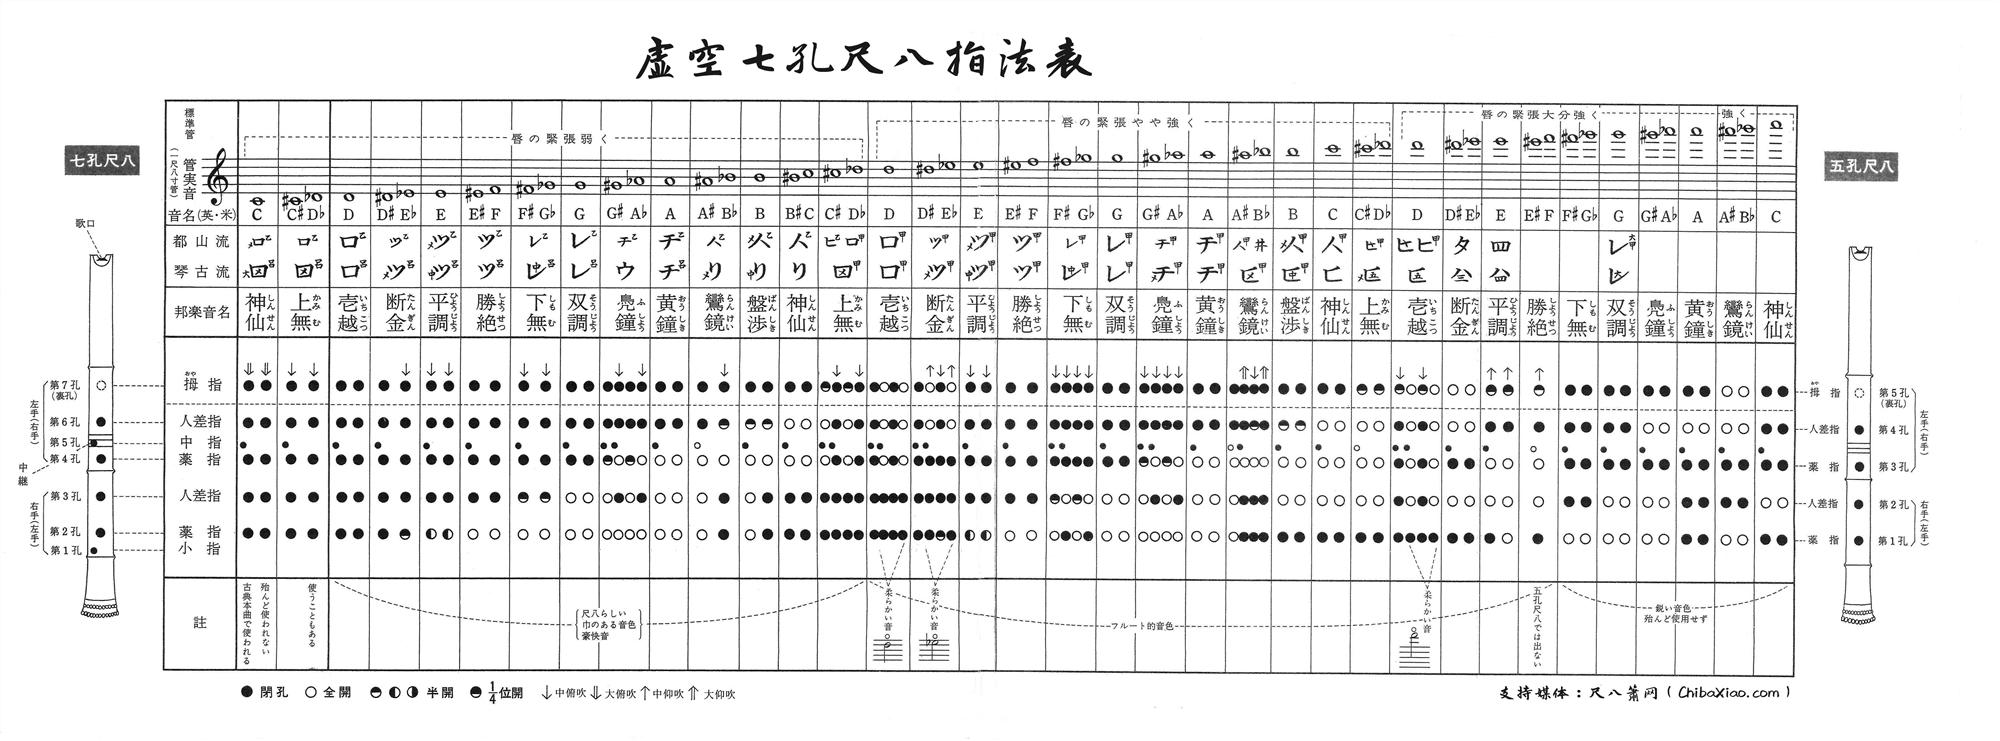 虚空七孔尺八指法表
七孔尺八
五孔尺八
歌口
標準管
(一尺八寸管)
管実音
唇の緊張弱く
唇の緊張やや強く
唇の緊張大分強く
強く
音名(英・米) C C♯ D♭ D D♯ E♭ E E♯ F F♯ G♭ G G♯ A♭ A A♯ B♭ B B♯ C C♯ D♭ D D♯ E♭ E E♯ F F♯ G♭ G G♯ A♭ A A♯ B♭ B C C♯ D♭ D D♯ E♭ E E♯ F F♯ G♭ G G♯ A♭ A A♯ B♭ C
都山流
琴古流
邦楽音名 神仙 上無 壱越 断金 平調 勝絶 下無 双調 鳧鐘 黄鐘 鸞鏡 盤渉 神仙 上無 壱越 断金 平調 勝絶 下無 双調 鳧鐘 黄鐘 鸞鏡 盤渉 神仙 上無 壱越 断金 平調 勝絶 下無 双調 鳧鐘 黄鐘 鸞鏡 神仙
第7孔
(裏孔)
第6孔
第5孔
第4孔
第3孔
第2孔
第1孔
左手(右手)
右手(左手)
中継
おや
拇指
人差指
中指
薬指
人差指
薬指
小指
拇指
人差指
薬指
人差指
薬指
第5孔
(裏孔)
第4孔
第3孔
第2孔
第1孔
左手(右手)
右手(左手)
註
古典本曲で使われる
殆んど使われない
使うこともある
尺八らしい
巾のある音色
豪快音
柔らかい音
柔らかい音
フルート的音色
柔らかい音
五孔尺八では出ない
鋭い音色
殆んど使用せず
●閉孔 ○全開 半開 1/4位開 ↓中俯吹 ⇓大俯吹 ↑中仰吹 ⇑大仰吹
支持媒体：尺八箫网(ChibaXiao.com)